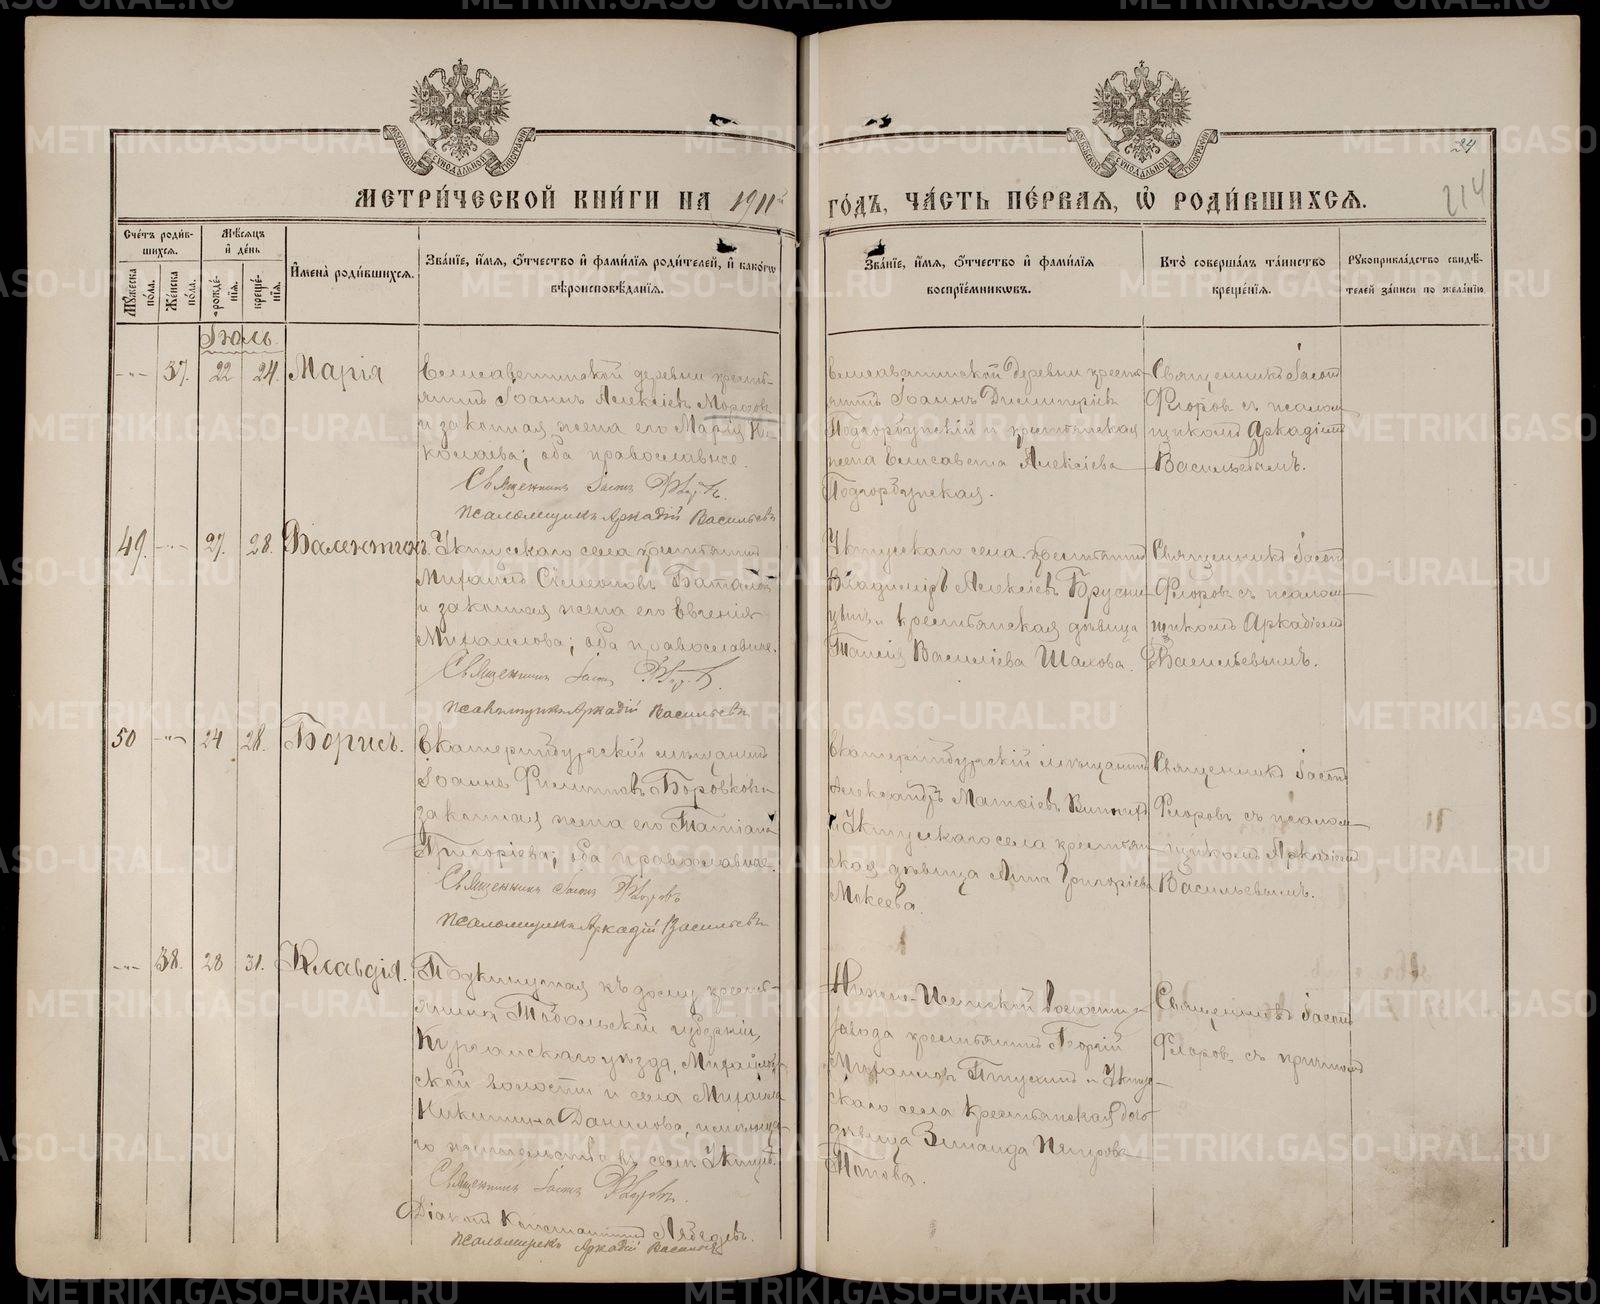 МЕТРИ́ЧЕСКОЙ КНИ́ГИ НА 1911
ГО́ДЪ, ЧА́СТЬ ПЕ́РВАЯ, Ѡ РОДИ́ВШИХСЯ.
24
214
Сче́тъ роди́в-
шихся.
Мѣ́сяцъ
и де́нь
Мꙋ́жеска по́ла.
Же́нска по́ла.
рожде́-
нїя.
креще́-
нїя.
Имена̀ роди́вшихся.
Зва́нїе, и́мя, о́тчество и фами́лїя роди́телей, и како́гѡ
вѣроисповѣ́данїя.
Зва́нїе, и́мя, о́тчество и фами́лїя
воспрїе́мникѡвъ.
Кто̀ соверша́лъ та́инство
креще́нїя.
Рꙋкоприкла́дство свидѣ́-
телей за́писи по жела́нїю
Іюль.
37. 22 24. Марія
Елисаветинской деревни кресть-
янинъ Іоаннъ Алексіевъ Морозовъ
и законная жена его Марія Ни-
колаева; оба православные.
Священникъ Іасонъ Флоровъ.
псаломщикъ Аркадій Васильевъ
Елисаветинской деревни кресть-
янинъ Іоаннъ Димитріевъ
Подгорбунскій и крестьянская
жена Елисавета Алексіева
Подгорбунская.
Священникъ Іасонъ
Флоровъ съ псалом-
щикомъ Аркадіемъ
Васильевымъ.
49. 27. 28. Валентинъ.
Уктусскаго села крестьянинъ
Михаилъ Симеоновъ Баталовъ
и законная жена его Евгенія
Михаилова; оба православные.
Священникъ Іасонъ Флоровъ.
псаломщикъ Аркадій Васильевъ
Уктусскаго села крестьянинъ
Владиміръ Алексіевъ Брусни-
цынъ и крестьянская дѣвица
Таисія Василіева Шахова.
Священникъ Іасонъ
Флоровъ съ псалом-
щикомъ Аркадіемъ
Васильевымъ.
50 24 28. Борисъ.
Екатеринбургскій мѣщанинъ
Іоаннъ Филипповъ Боровковъ и
законная жена его Татіана
Григоріева; оба православные.
Священникъ Іасонъ Флоровъ
псаломщикъ Аркадій Васильевъ
Екатеринбургскій мѣщанинъ
Александръ Матѳіевъ
и Уктусскаго села крестьян-
ская дѣвица Анна Григоріева
Мокеева.
Священникъ Іасонъ
Флоровъ съ псалом-
щикомъ Аркадіемъ
Васильевымъ.
38. 28 31. Клавдія.
Подкинутая къ дому кресть-
янина Тобольской губерніи,
Курганскаго уѣзда, Михайлов-
ской волости и села Михаила
Никитина Данилова,
жительство въ селѣ Уктусѣ.
Священникъ Іасонъ Флоровъ.
Діаконъ Константинъ Лебедевъ.
псаломщикъ Аркадій Васильевъ
Нижне-Исетской волости и
завода крестьянинъ Георгій
Михаиловъ Птухинъ и Уктус-
скаго села крестьянская дочь
дѣвица Зинаида Петрова
Попова.
Священникъ Іасонъ
Флоровъ съ причтомъ
METRIKI.GASO-URAL.RU